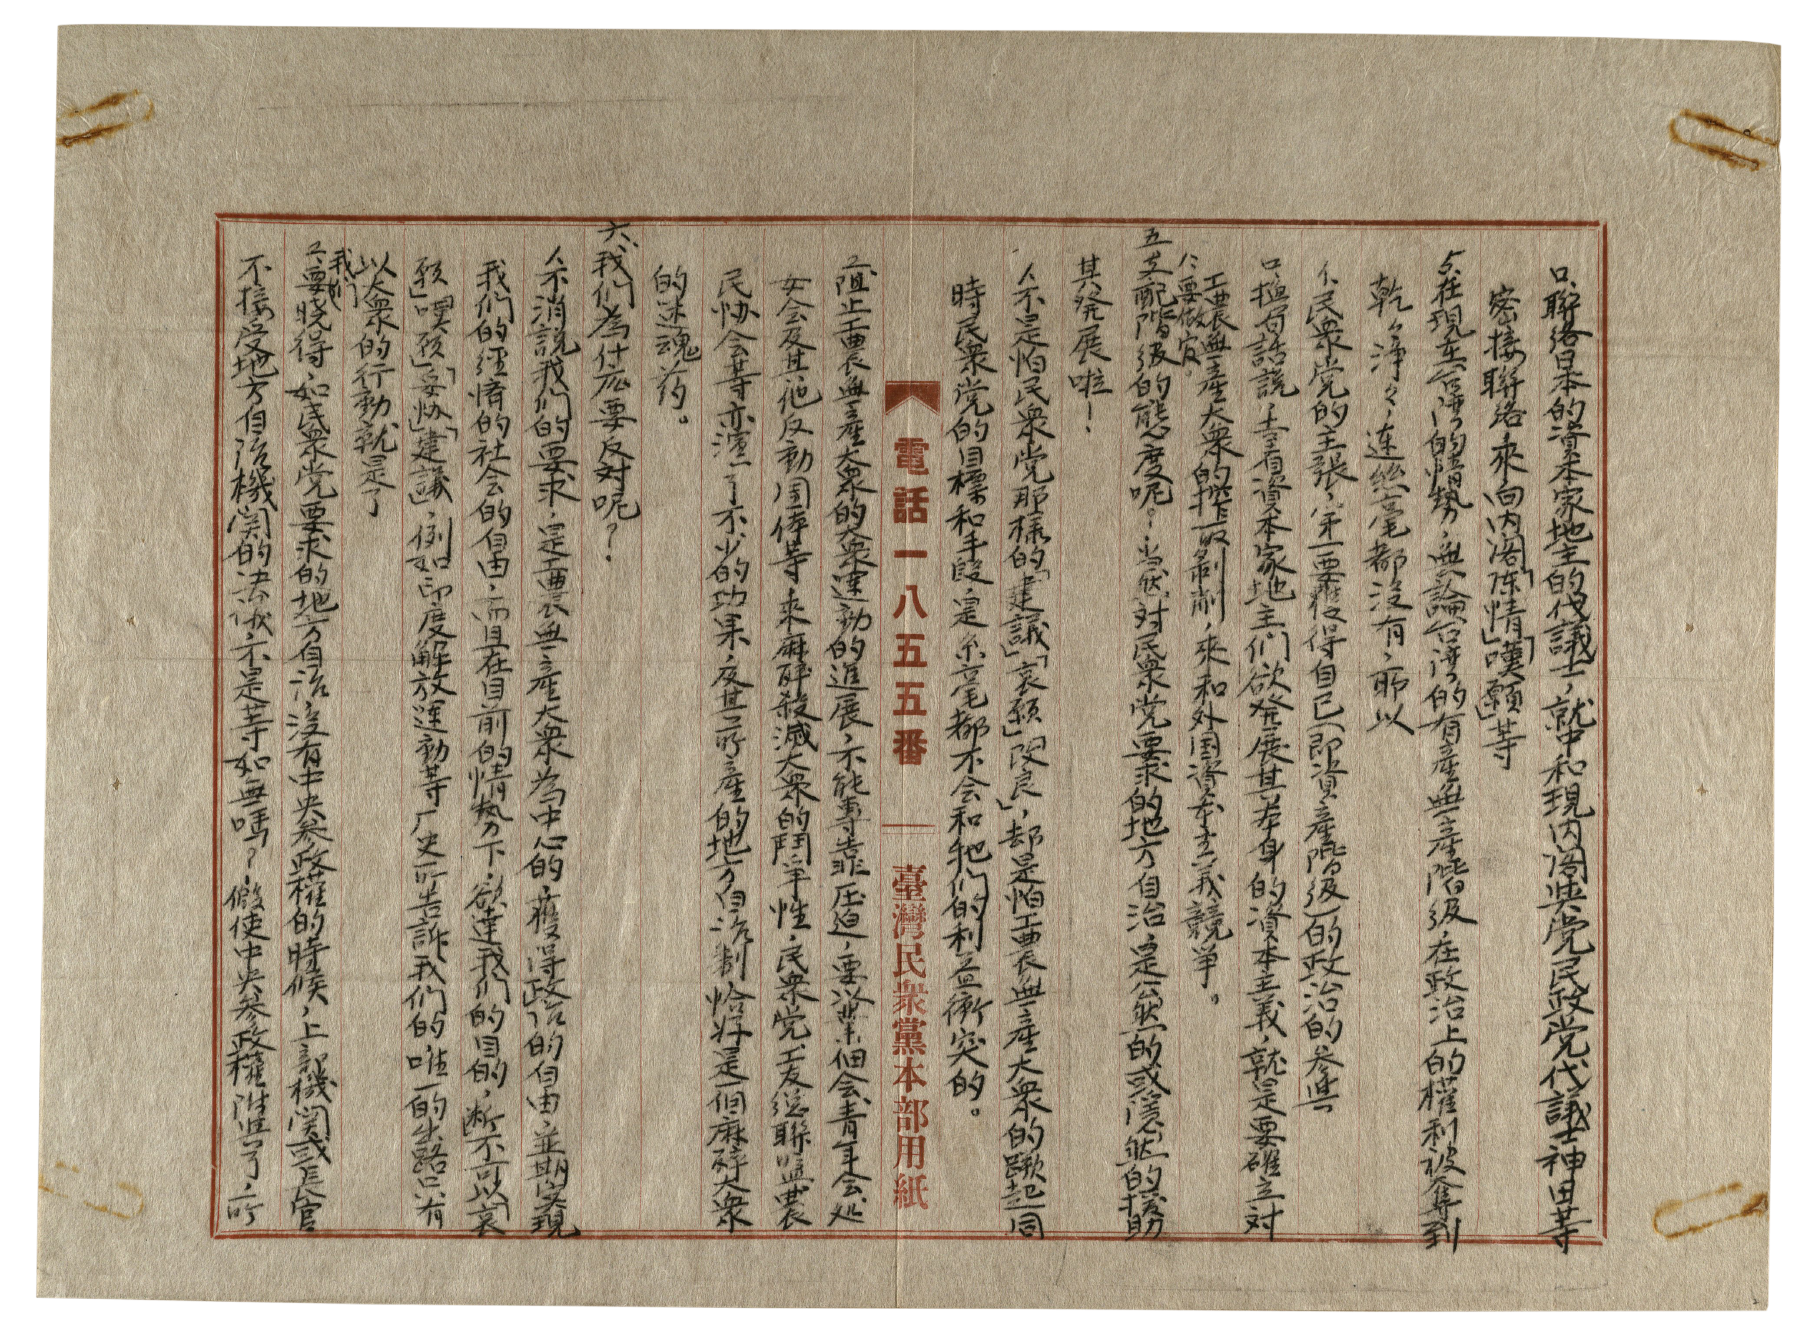 口、聯絡日本的資本家地主的代議士，就中和現內閣與党民政党代議士神田等
密接聯絡來向內閣「陳情」「嘆願」等
5、在現在台湾的情勢，無論台湾的有產無產階级，在政治上的權利被奪到
乾々淨々，連絲毫都沒有，所以
イ、民衆党的主張，第一要獲得自己（即資產階级）的政治的參與
口、換句話說，就有資本家地主们欲發展其本身的資本主義，就是要確立对
工農無產大衆的搾取剝削，來和外国資本主義競爭。
八、要做官
五、支配階级的態度呢？，当然对民衆党要求的地方自治，是公然的或隱然的援助
其発展啦！
1、不是怕民衆党那樣的「建議」「哀願」「改良」，却是怕工農無產大衆的蹶起，同
時民衆党的目標和手段，是糸毫都不会和他们的利益衝突的。
2、阻止工農無產大衆的大衆運動的進展，不能專靠压迫，要做業佃会、青年会、处
女会及其他反動団体等，來麻醉殺滅大衆的鬥爭性，民衆党、工友総聯盟、農
民协会等亦演了不少的功果，及其所產的地方自治制恰好是一個麻醉大衆
的迷魂药。
六、我们為什厷要反对呢？，
1、不消說我们的要求，是工農無產大衆為中心的，獲得政治的自由，並期实現
我们的经情的社会的自由，而且在目前的情勢下，欲達我们的目的，断不可以「哀
願」「嘆願」「妥协」「建議」，例如印度解放運動等厂史所告訴我们的唯一的出路只有
以大衆的行動就是了
我们
2、要晓得，如民衆党要求的地方自治沒有中央參政權的時候，上部機関或長官
不接受地方自治機関的决議，不是等如無嗎？，假使中央參政權附與了，所
電話一八五五番
臺灣民衆黨本部用紙